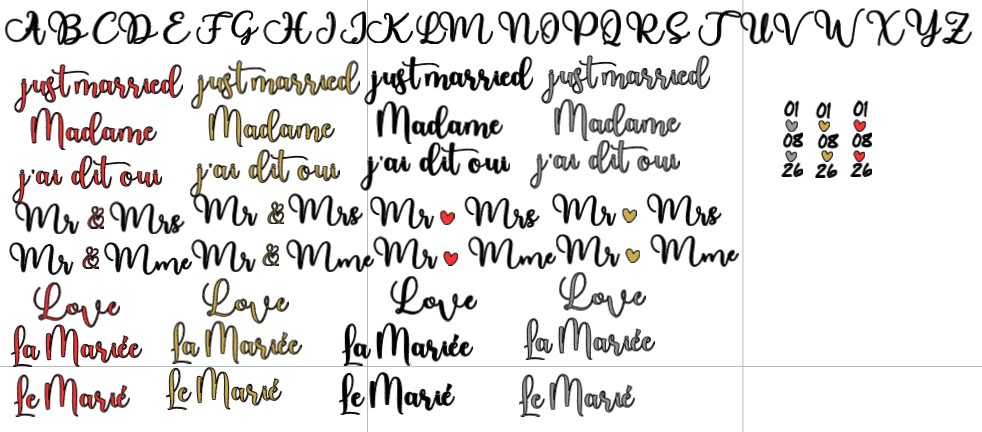 A B C D E F G H I J K L M N O P Q R S T U V W X Y Z
just married just married just married just married
Madame Madame Madame Madame
j'ai dit oui j'ai dit oui j'ai dit oui j'ai dit oui
Mr & Mrs Mr & Mrs Mr ♥ Mrs Mr ♥ Mrs
Mr & Mme Mr & Mme Mr ♥ Mme Mr ♥ Mme
Love Love Love Love
la Mariée la Mariée la Mariée la Mariée
Le Marié Le Marié Le Marié Le Marié
01 01 01
08 08 08
26 26 26